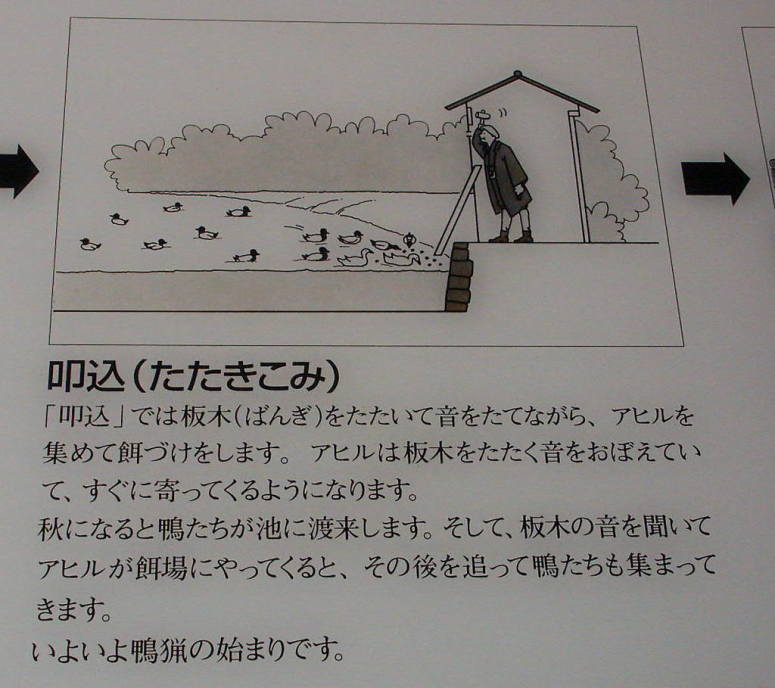 叩込(たたきこみ)
「叩込」では板木(ばんぎ)をたたいて音をたてながら、アヒルを
集めて餌づけをします。アヒルは板木をたたく音をおぼえてい
て、すぐに寄ってくるようになります。
秋になると鴨たちが池に渡来します。そして、板木の音を聞いて
アヒルが餌場にやってくると、その後を追って鴨たちも集まって
きます。
いよいよ鴨猟の始まりです。